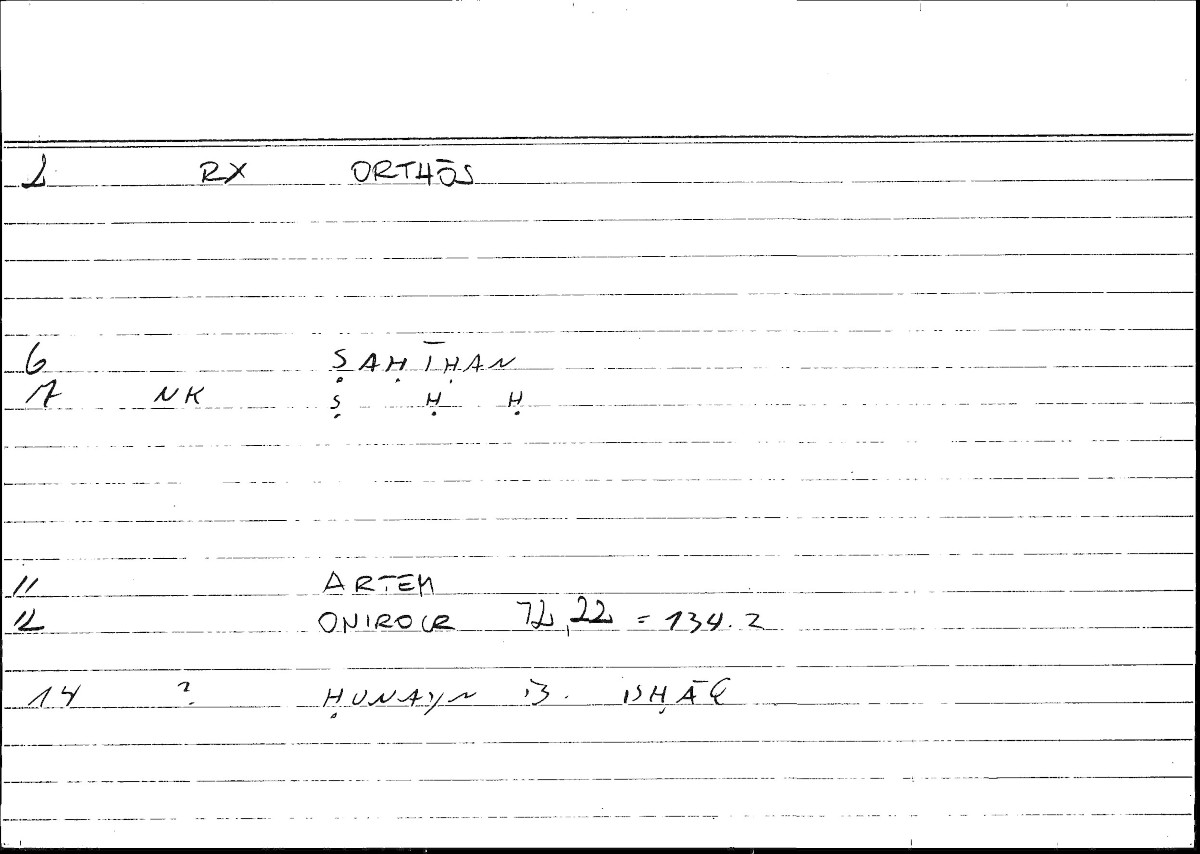 2 RX ORTHŌS
6 ṢAḤĪḤAN
7 NK Ṣ Ḥ Ḥ
11 ARTEM
12 ONIROCR 72,22 = 134.2
14 ? ḤUNAYN B. ISḤĀQ